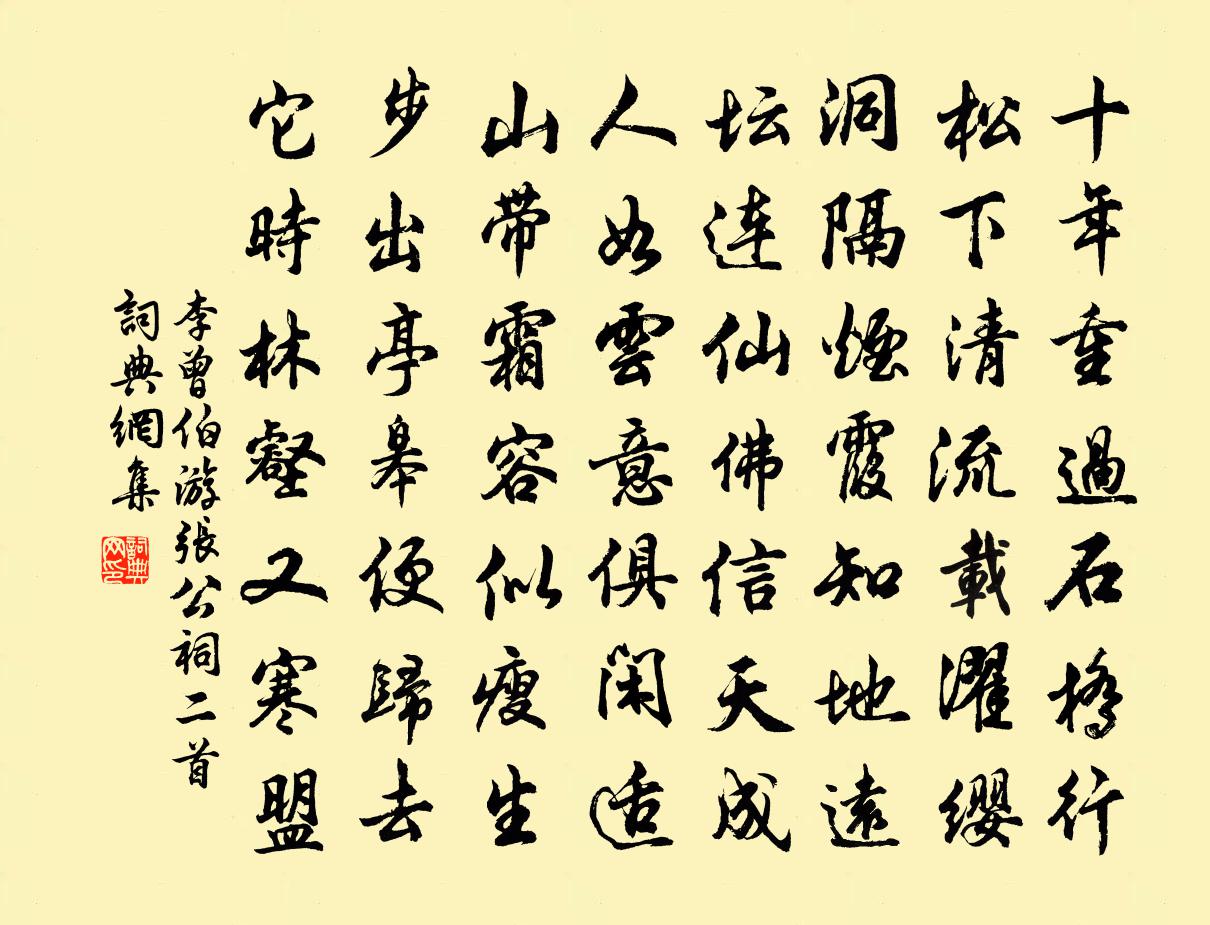 十年重過石橋行
松下清流載濯纓
洞隔煙霞知地遠
坛連仙佛信天成
人如雲意俱閑适
山帶霜容似瘦生
步出亭皋便歸去
它時林壑又寒盟
李曾伯游張公祠二首
詞典網集
詞典网印